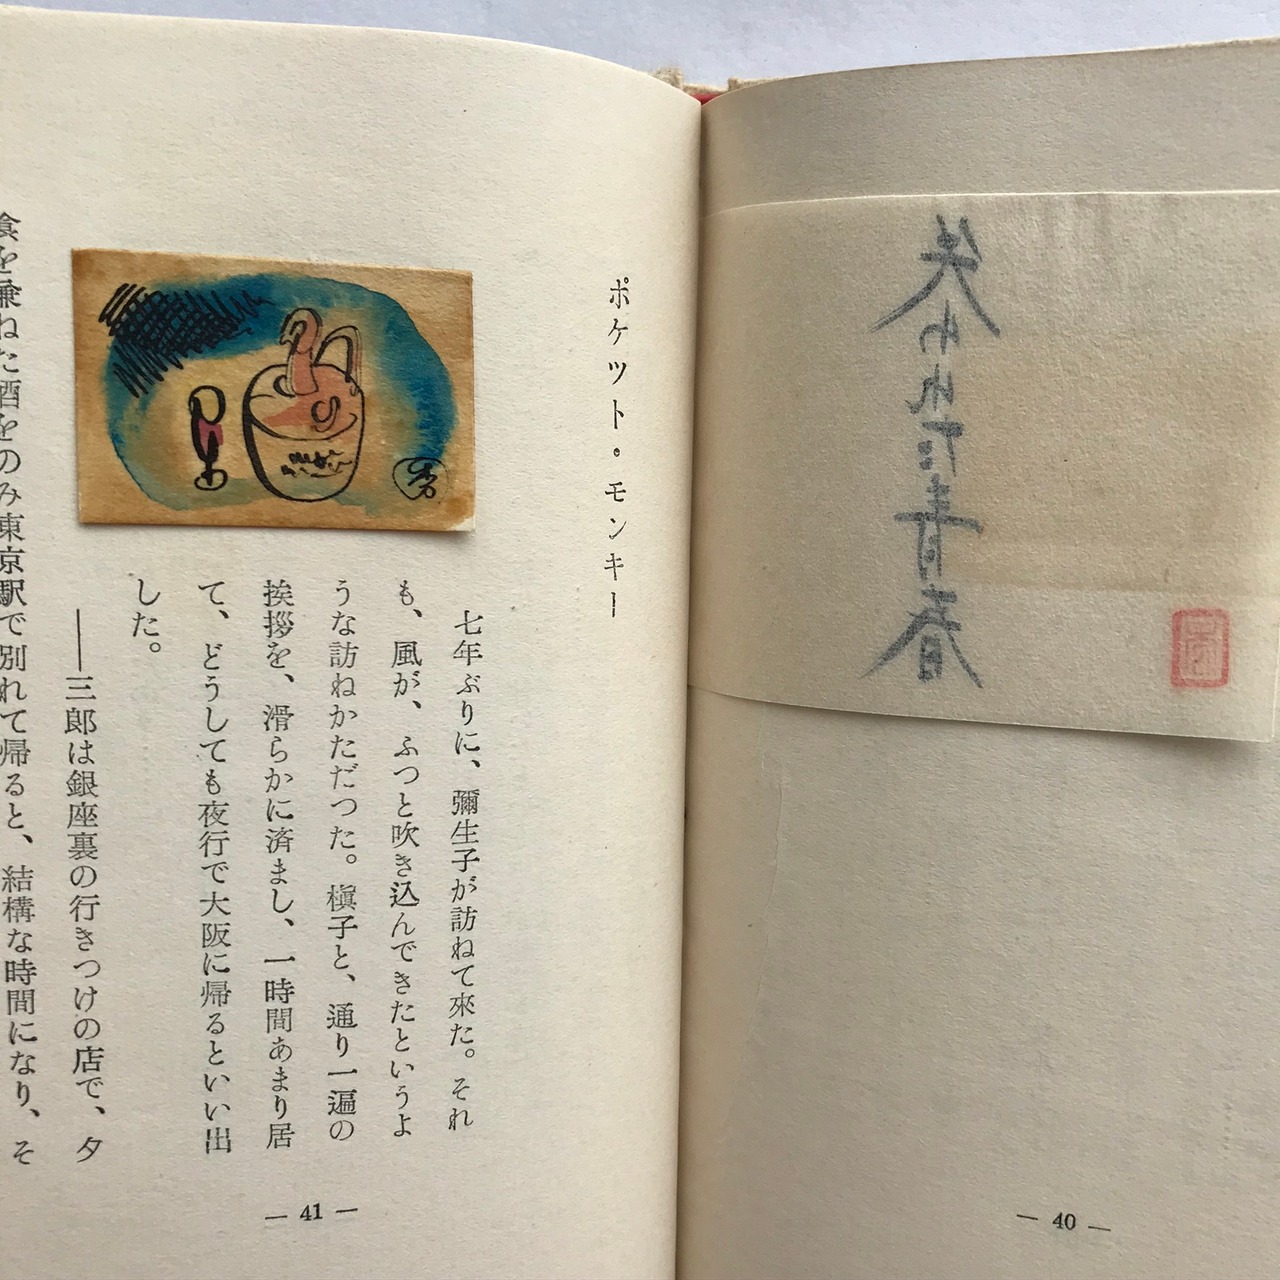 失われた青春
— 40 —
ポケツト・モンキー
七年ぶりに、彌生子が訪ねて來た。それ
も、風が、ふつと吹き込んできたというよ
うな訪ねかただつた。槇子と、通り一遍の
挨拶を、滑らかに済まし、一時間あまり居
て、どうしても夜行で大阪に帰るといい出
した。
――三郎は銀座裏の行きつけの店で、夕
食を兼ねた酒をのみ東京駅で別れて帰ると、結構な時間になり、そ
— 41 —